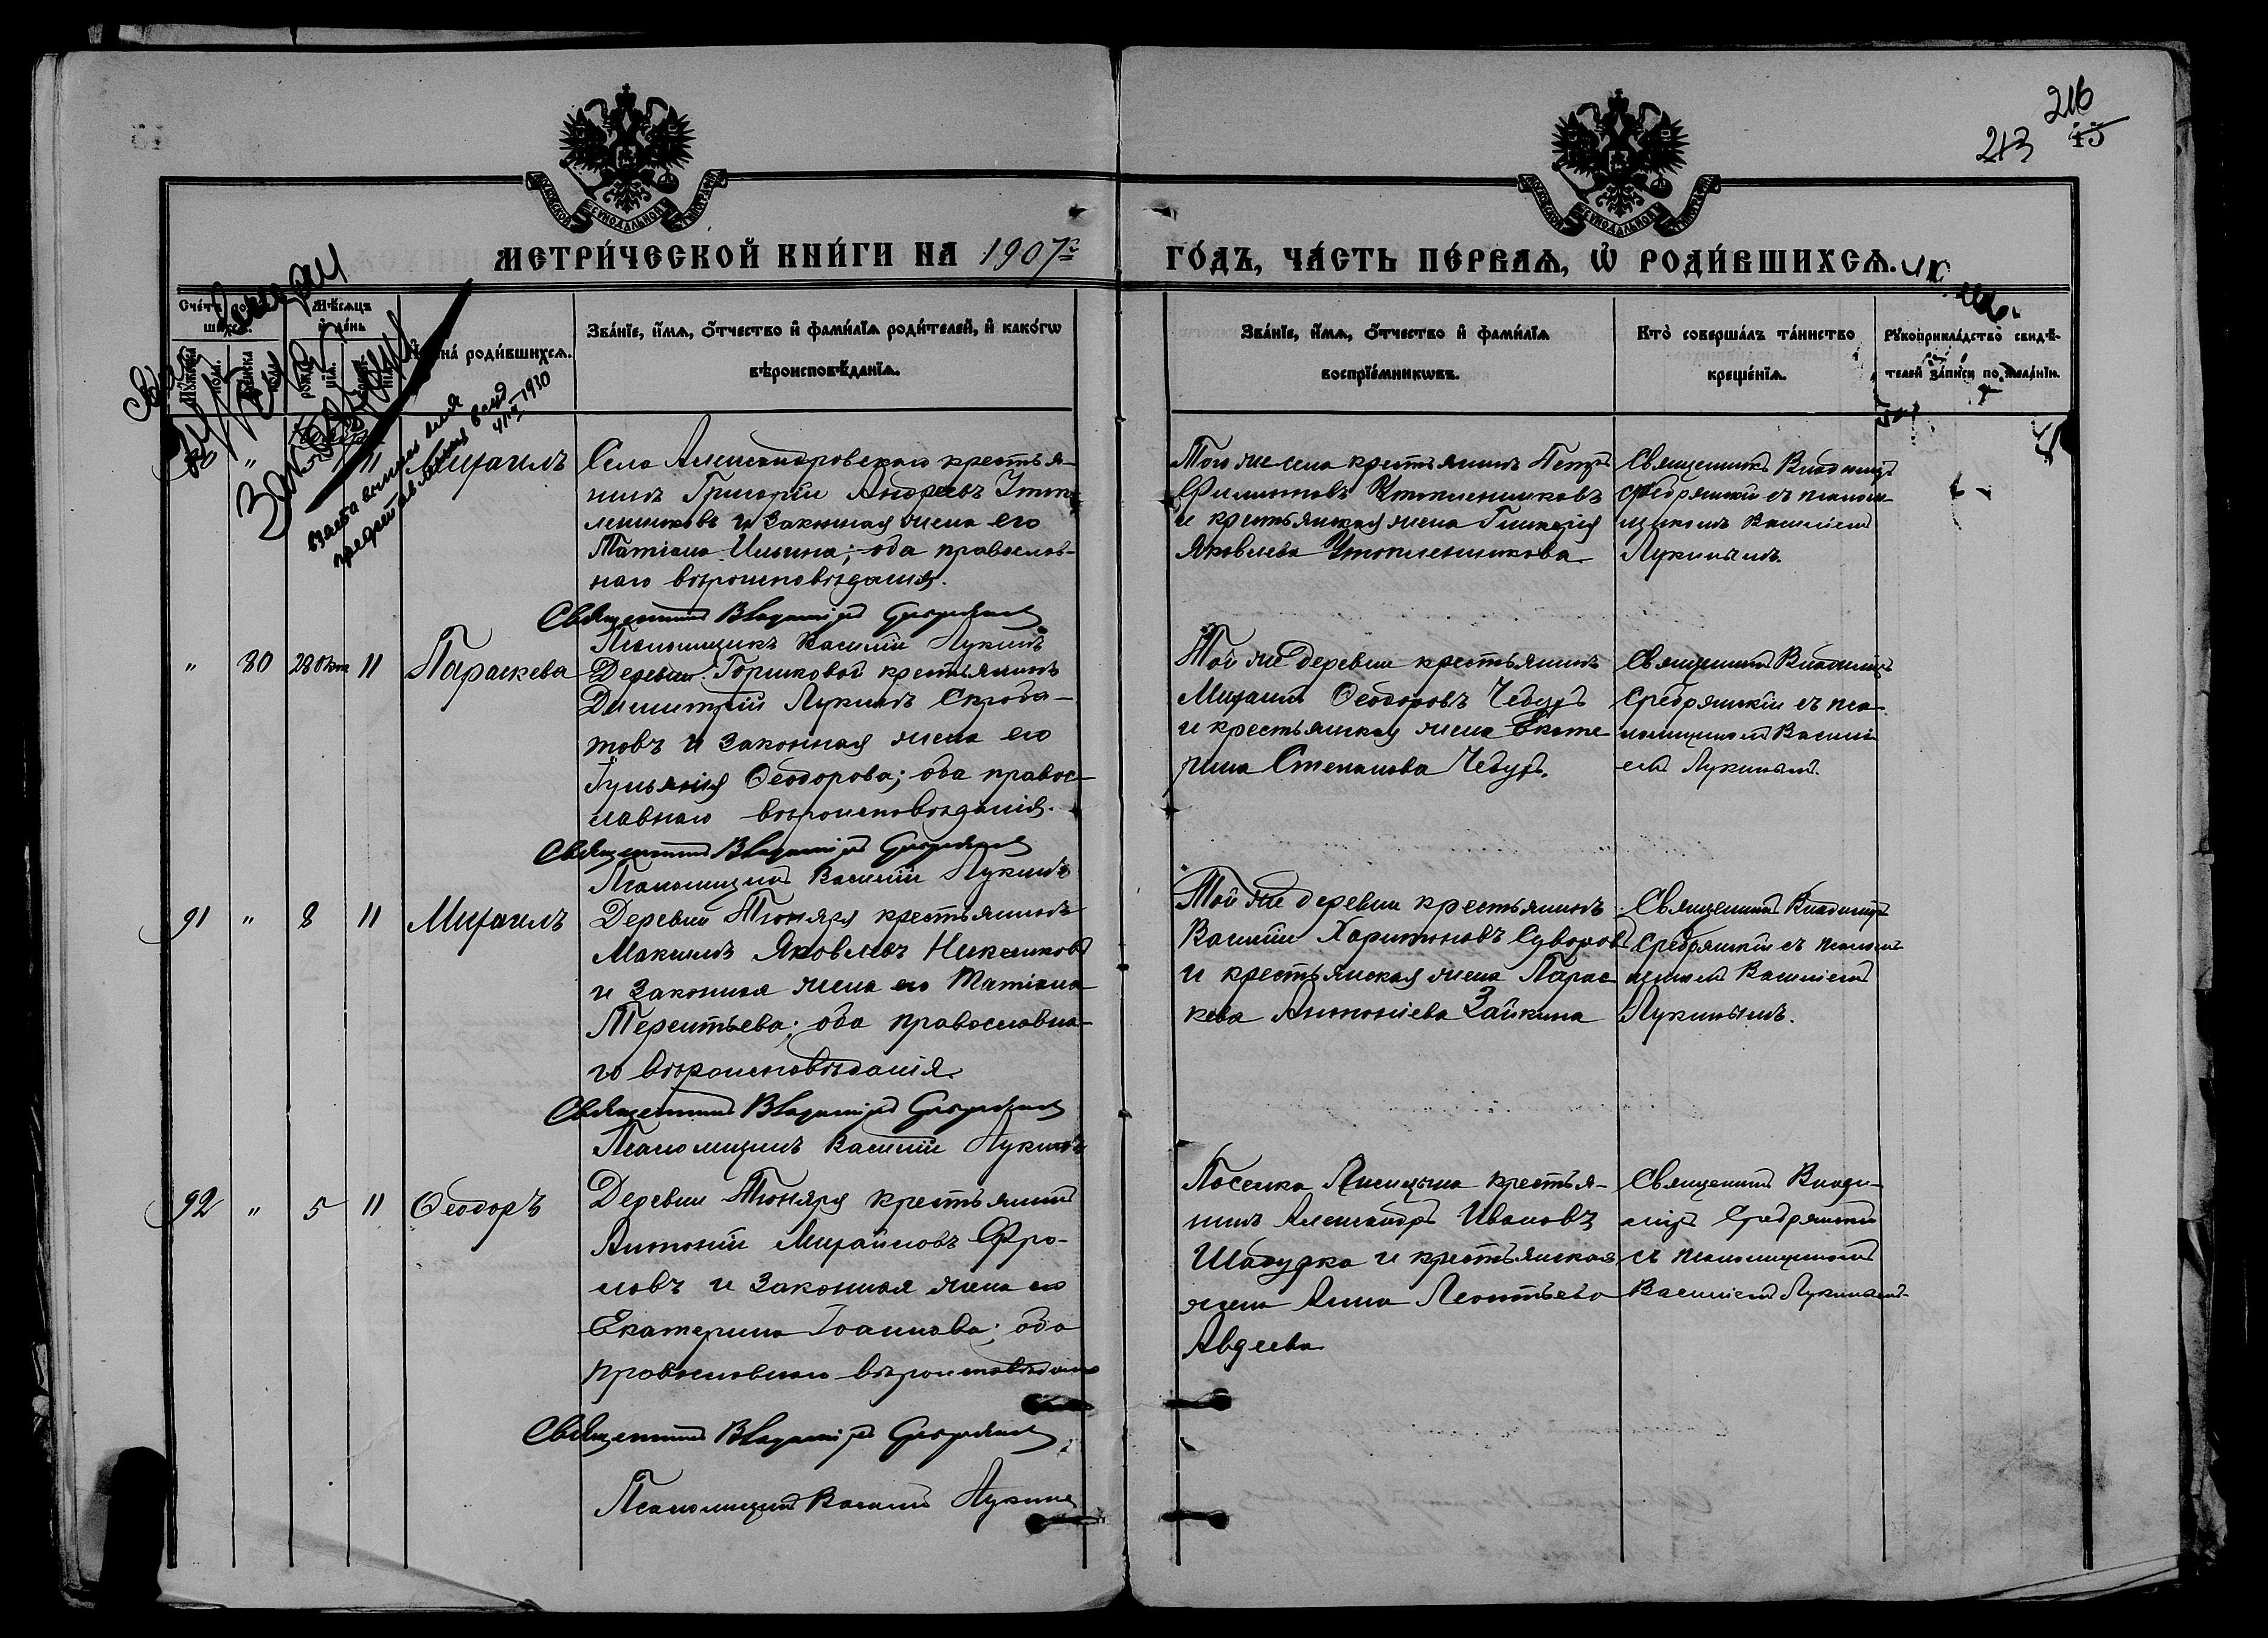 216
213 45
МЕТРИ́ЧЕСКОЙ КНИ́ГИ НА 1907 г.
ГО́ДЪ, ЧА́СТЬ ПЕ́РВАѦ, Ѡ҆ РОДИ́ВШИХСѦ.
Мѣсяцъ и де́нь
Имена́ роди́вшихсѧ.
Зва́нїе, и҆́мѧ, ѻ҆́тчество и҆ фами́лїѧ роди́телей, и҆ како́гѡ
вѣроисповѣ́данїѧ.
Зва́нїе, и҆́мѧ, ѻ҆́тчество и҆ фами́лїѧ
воспрїе́мникѡвъ.
Кто̀ соверша́лъ та́инство
креще́нїѧ.
Рꙋкоприкла́дство свидѣ́-
телей за́писи по жела́нїю.
11 Михаилъ
Села Александровскаго крестья-
нинъ Григорій Андреевъ Утоп-
ленниковъ и законная жена его
Татіана Ильина; оба православ-
наго вѣроисповѣданія.
Священникъ Владиміръ Сребрянскій
Псаломщикъ Василій Лукинъ
Того же села крестьянинъ Петръ
Филиповъ Утопленниковъ
и крестьянская жена Гликерія
Яковлева Утопленникова
Священникъ Владиміръ
Сребрянскій съ псалом-
щикомъ Василіемъ
Лукинымъ.
" 80 28 Окт 11 Параскева
Деревни Горшковой крестьянинъ
Димитрій Лукинъ Скроба-
товъ и законная жена его
Іуліанія Ѳеодорова; оба правос-
лавнаго вѣроисповѣданія.
Священникъ Владиміръ Сребрянскій
Псаломщикъ Василій Лукинъ
Той же деревни крестьянинъ
Михаилъ Ѳеодоровъ Чебуръ
и крестьянская жена Екате-
рина Степанова Чебуръ.
Священникъ Владиміръ
Сребрянскій съ пса-
ломщикомъ Василі-
емъ Лукинымъ.
91 " 8 11 Михаилъ
Деревни Тюняря крестьянинъ
Максимъ Яковлевъ Никешковъ
и законная жена его Татіана
Терентьева; оба православна-
го вѣроисповѣданія.
Священникъ Владиміръ Сребрянскій
Псаломщикъ Василій Лукинъ
Той же деревни крестьянинъ
Василій Харитоновъ Суворовъ
и крестьянская жена Парас-
кева Антоніева Зайкина
Священникъ Владиміръ
Сребрянскій съ псалом-
щикомъ Василіемъ
Лукинымъ.
92 " 5 11 Ѳеодоръ
Деревни Тюняря крестьянинъ
Антоній Михайловъ Фро-
ловъ и законная жена его
Екатерина Іоаннова; оба
православнаго вѣроисповѣданія
Священникъ Владиміръ Сребрянскій
Псаломщикъ Василій Лукинъ
Поселка Лисицына крестья-
нинъ Александръ Ивановъ
Шабурка и крестьянская
жена Анна Леонтьева
Авдеева
Священникъ Влади-
міръ Сребрянскій
съ псаломщикомъ
Василіемъ Лукинымъ